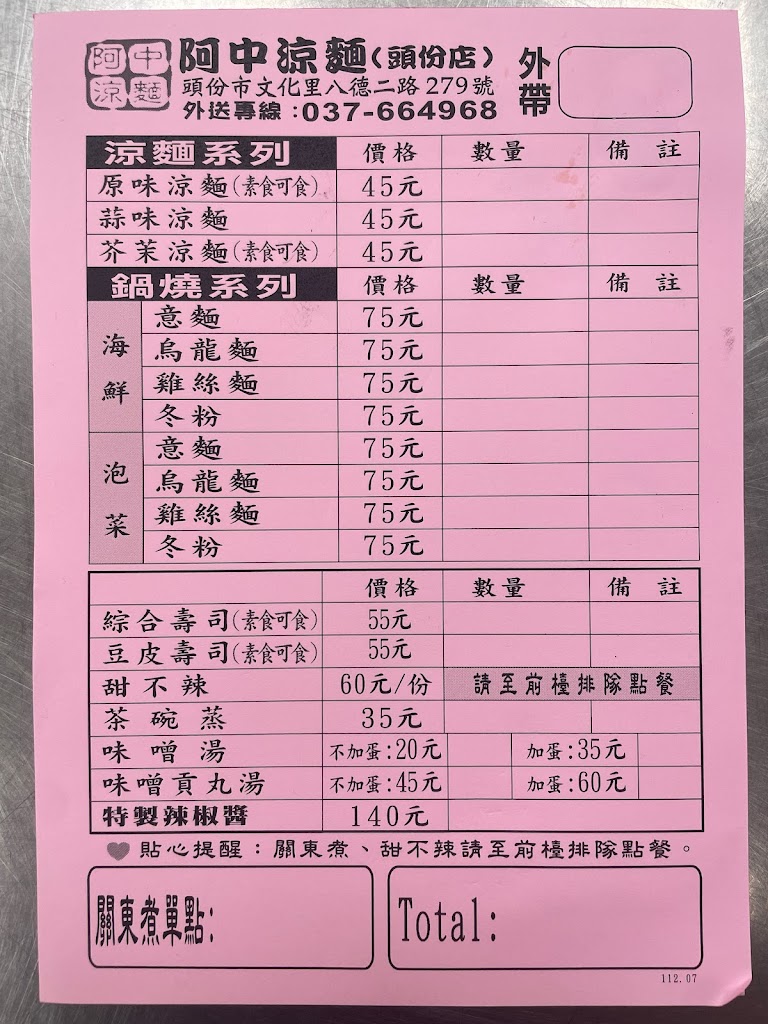 阿中涼麵
阿中涼麵(頭份店)
頭份市文化里八德二路279號
外送專線:037-664968
外帶
涼麵系列 價格 數量 備註
原味涼麵(素食可食) 45元
蒜味涼麵 45元
芥茉涼麵(素食可食) 45元
鍋燒系列 價格 數量 備註
海鮮
意麵 75元
烏龍麵 75元
雞絲麵 75元
冬粉 75元
泡菜
意麵 75元
烏龍麵 75元
雞絲麵 75元
冬粉 75元
價格 數量 備註
綜合壽司(素食可食) 55元
豆皮壽司(素食可食) 55元
甜不辣 60元/份 請至前檯排隊點餐
茶碗蒸 35元
味噌湯 不加蛋:20元 加蛋:35元
味噌貢丸湯 不加蛋:45元 加蛋:60元
特製辣椒醬 140元
貼心提醒:關東煮、甜不辣請至前檯排隊點餐。
關東煮單點:
Total:
112.07